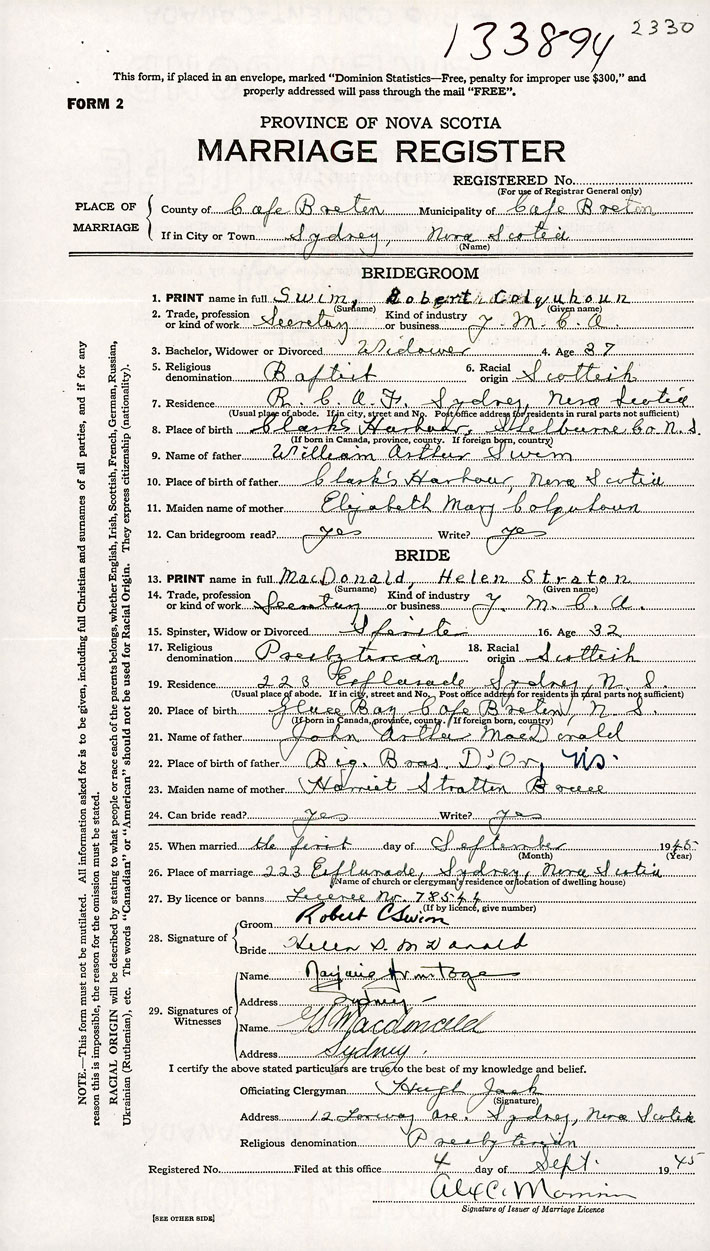 133894 2330
This form, if placed in an envelope, marked "Dominion Statistics—Free, penalty for improper use $300," and
properly addressed will pass through the mail "FREE".
FORM 2
PROVINCE OF NOVA SCOTIA
MARRIAGE REGISTER
REGISTERED No.
(For use of Registrar General only)
PLACE OF MARRIAGE
County of Cape Breton Municipality of Cape Breton
If in City or Town Sydney, Nova Scotia
(Name)
BRIDEGROOM
1. PRINT name in full Swim, Robert Colquhoun
(Surname) (Given name)
2. Trade, profession or kind of work Secretary Kind of industry or business Y. M. C. A.
3. Bachelor, Widower or Divorced Widower 4. Age 37
5. Religious denomination Baptist 6. Racial origin Scottish
7. Residence R. C. A. F. Sydney, Nova Scotia
(Usual place of abode. If in city, street and No. Post office address for residents in rural parts not sufficient)
8. Place of birth Clark's Harbour, Shelburne Co. N. S.
(If born in Canada, province, county. If foreign born, country)
9. Name of father William Arthur Swim
10. Place of birth of father Clark's Harbour, Nova Scotia
11. Maiden name of mother Elizabeth Mary Colquhoun
12. Can bridegroom read? yes Write? yes
BRIDE
13. PRINT name in full MacDonald, Helen Straton
(Surname) (Given name)
14. Trade, profession or kind of work Secretary Kind of industry or business Y. M. C. A.
15. Spinster, Widow or Divorced Spinster 16. Age 32
17. Religious denomination Presbyterian 18. Racial origin Scottish
19. Residence 223 Esplanade Sydney, N. S.
(Usual place of abode. If in city, street and No. Post office address for residents in rural parts not sufficient)
20. Place of birth Glace Bay Cape Breton, N. S.
(If born in Canada, province, county. If foreign born, country)
21. Name of father John Arthur MacDonald
22. Place of birth of father Big. Bras. D'Or, NS.
23. Maiden name of mother Harriet Stratten Bruce
24. Can bride read? yes Write? yes
25. When married the first day of September 1945
(Month) (Year)
26. Place of marriage 223 Esplanade, Sydney, Nova Scotia
(Name of church or clergyman's residence or location of dwelling house)
27. By licence or banns Licence No. 78544
(If by licence, give number)
28. Signature of Groom Robert C Swim
Bride Helen S. McDonald
29. Signatures of Witnesses
Name Marjorie Armitage
Address Sydney
Name G Macdonald
Address Sydney.
I certify the above stated particulars are true to the best of my knowledge and belief.
Officiating Clergyman Hugh Jack
(Signature)
Address 12 Ave. Sydney, Nova Scotia
Religious denomination Presbyterian
Registered No. Filed at this office 4 day of Sept. 1945
Alex C.
Signature of Issuer of Marriage Licence
[SEE OTHER SIDE]
NOTE.—This form must not be mutilated. All information asked for is to be given, including full Christian and surnames of all parties, and if for any
reason this is impossible, the reason for the omission must be stated.
RACIAL ORIGIN will be described by stating to what people or race each of the parents belongs, whether English, Irish, Scottish, French, German, Russian,
Ukrainian (Ruthenian), etc. The words "Canadian" or "American" should not be used for Racial Origin. They express citizenship (nationality).